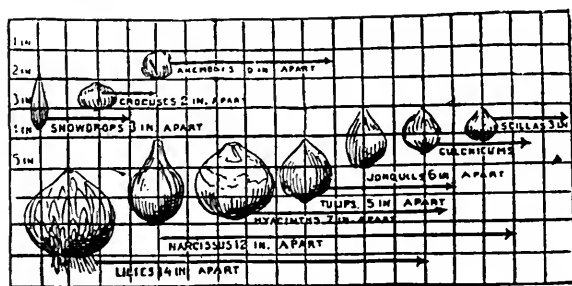 1 IN
2 IN
ANEMONES 6 IN. APART
3 IN
CROCUSES 2 IN. APART
SCILLAS 3 IN
4 IN
SNOWDROPS 3 IN. APART
COLCHICUMS
5 IN
JONQUILS 6 IN. APART
TULIPS. 5 IN APART
HYACINTHS. 7 IN. APART
NARCISSUS 12 IN. APART
LILIES 14 IN. APART